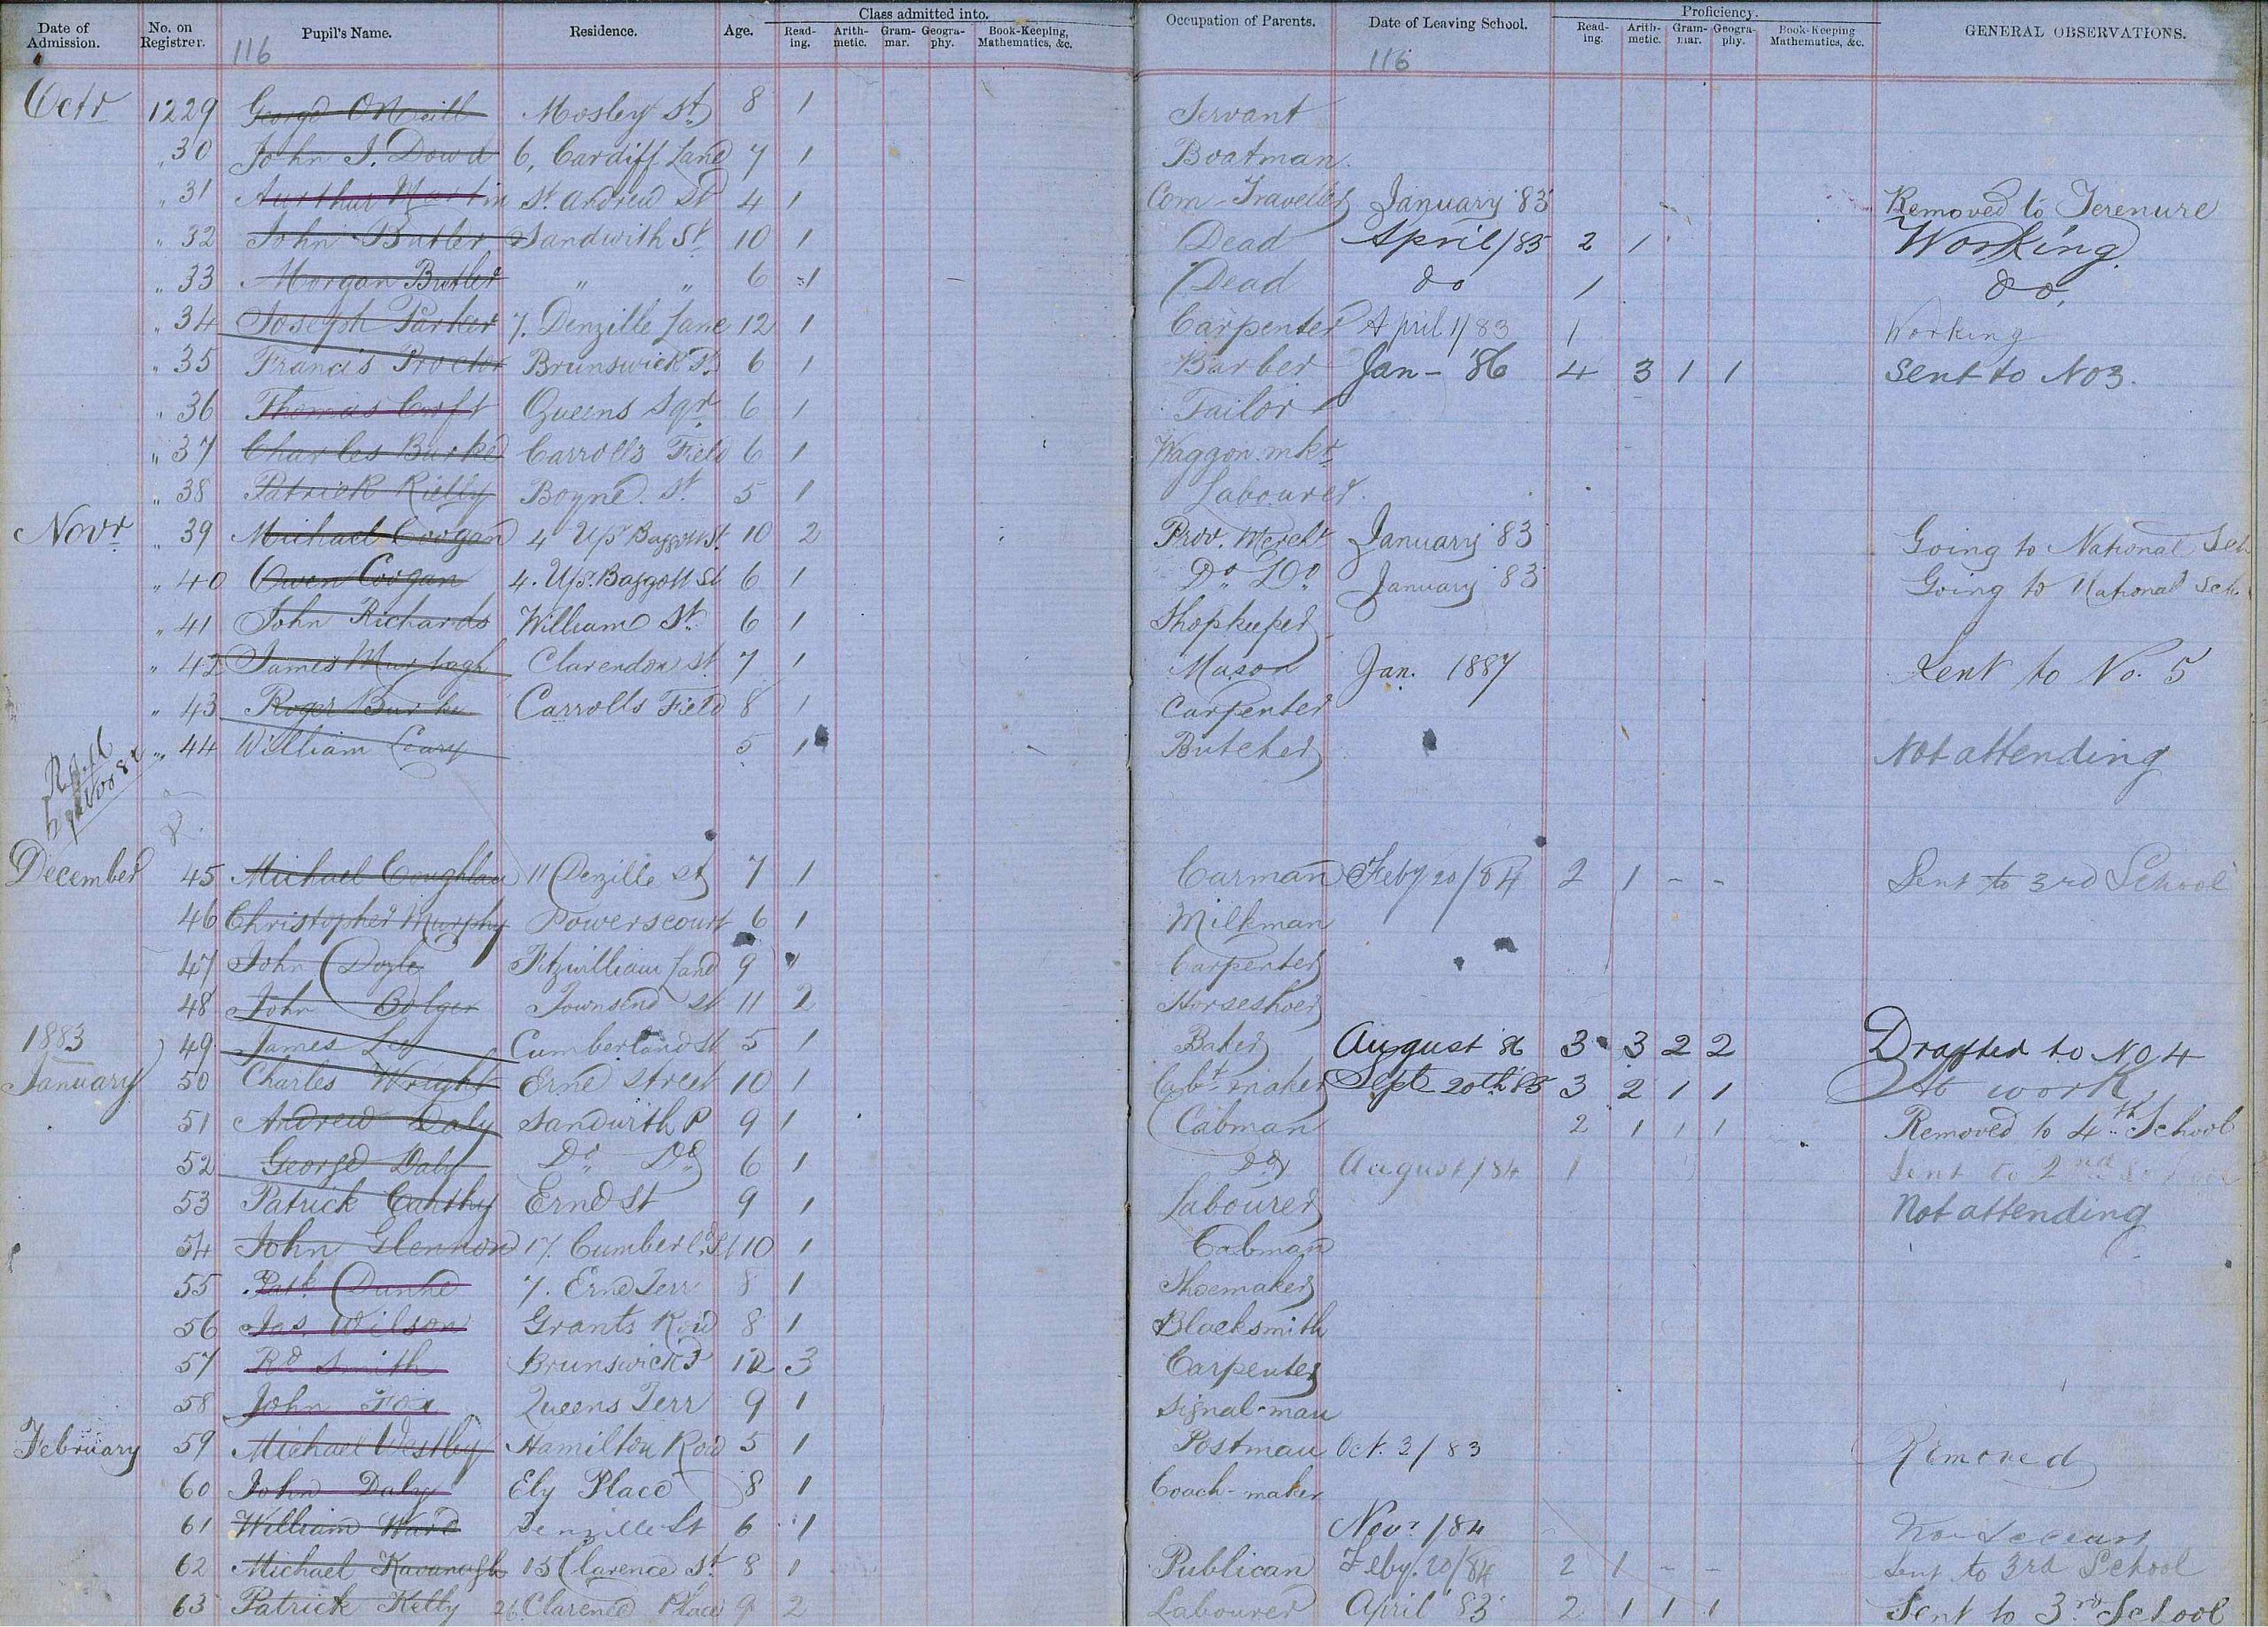 Date of Admission. No. on Registrer. Pupil's Name. Residence. Age. Class admitted into. Reading. Arithmetic. Grammar. Geography. Book-Keeping, Mathematics, &c. Occupation of Parents. Date of Leaving School. Proficiency. Reading. Arithmetic. Grammar. Geography. Book-Keeping Mathematics, &c. GENERAL OBSERVATIONS.
116 116
Octr 1229 George O'Neill Mosley St. 8 1 Servant
" 30 John J. Dowd 6, Cardiff Lane 7 1 Boatman.
" 31 Aurthur Martin St. Andrew St 4 1 Com - Traveller January '83 Removed to Terenure
" 32 John Butler Sandwith St. 10 1 Dead April/85 2 1 Working.
" 33 Morgan Butler " " 6 1 Dead do 1 do.
" 34 Joseph Parker 7. Denzille Lane 12 1 Carpenter April 1/83 1 Working
" 35 Francis Proctor Brunswick St. 6 1 Barber Jan - '86 4 3 1 1 Sent to No 3.
" 36 Thomas Queens Sqr. 6 1 Tailor
" 37 Charles Burke Carrolls Field 6 1 Waggon mkr.
" 38 Patrick Rielly Boyne St. 5 1 Labourer.
Novr " 39 Michael Coogan 4 Upr Baggott St. 10 2 Prov. Mercht January '83 Going to National Sch
" 40 Owen Coogan 4. Up. Baggott St 6 1 Do. Do. January '83 Going to National Sch.
" 41 John Richards William St. 6 1 Shopkeeper
" 42 James Murtagh Clarendon St. 7 1 Mason Jan. 1887 Sent to No. 5
" 43 Roger Burke Carrolls Field 8 1 Carpenter
" 44 William Leary 5 1 Butcher Not attending
December 45 Michael Coughlan 11 Denzille St 7 1 Carman Feby 20/84 2 1 - - Sent to 3rd School
46 Christopher Murphy Powerscourt 6 1 Milkman
47 John Doyle Fitzwilliam Lane 9 " Carpenter
48 John Bolger Townsend St 11 2 Horseshoer
1883 49 James Cumberland St 5 1 Baker August 86 3 3 2 2 Drafted to No 4
January 50 Charles Wright Erne Street 10 1 Cabt. maker Sept 20th 85 3 2 1 1 At work
51 Andrew Daly Sandwith P 9 1 Cabman 2 1 1 1 Removed to 4th School
52 George Daly Do. Do. 6 1 Do. August/84 1 Sent to 2nd School
53 Patrick Carthy Erne St 9 1 Labourer Not attending
54 John Glennon 17. Cumberld. St 10 1 Cabman
55 Patk. Dunne 7. Erne Terr 8 1 Shoemaker
56 Jas. Wilson Grants Row 8 1 Blacksmith
57 Rd Smith Brunswick St 12 3 Carpenter
58 John Fox Queens Terr 9 1 Signal-man
February 59 Michael Westby Hamilton Row 5 1 Postman Oct. 3/83 Removed
60 John Daly Ely Place 8 1 Coach-maker
61 William Ward Denzille St 6 1 Novr/84
62 Michael Kavanagh 15 Clarence St. 8 1 Publican Feby. 20/84 2 1 - - Sent to 3rd School
63 Patrick Kelly Clarence Place 9 2 Labourer April 83 2 1 1 1 Sent to 3rd School